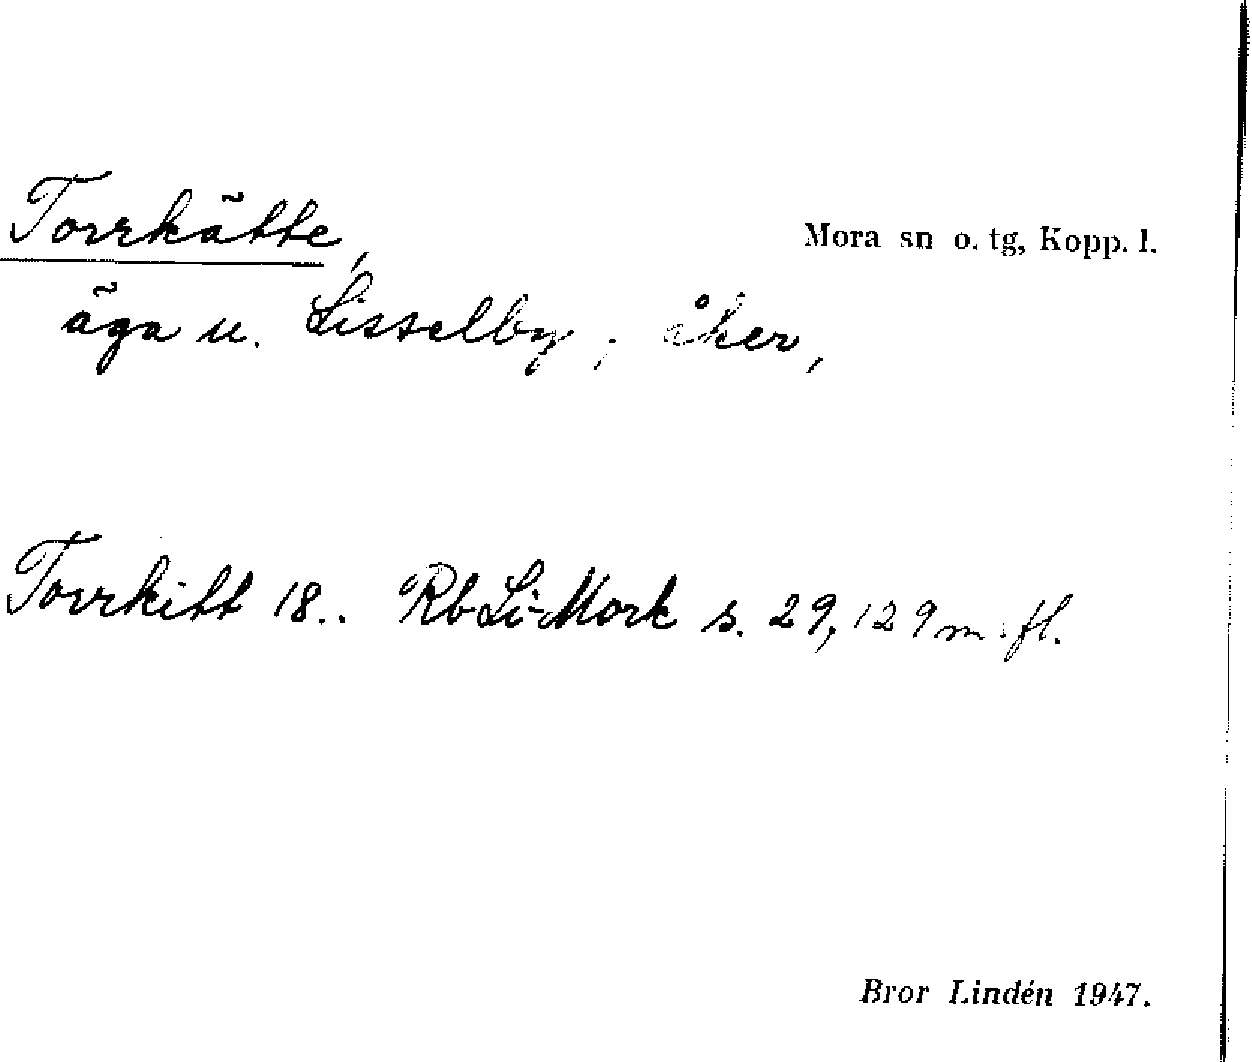 Torrkätte,
Mora sn o. tg, Kopp. l.
äga u. Lisselby; åker,
Torrkitt 18.. Rb Li-Mork s. 29, 129 m. fl.
Bror Lindén 1947.